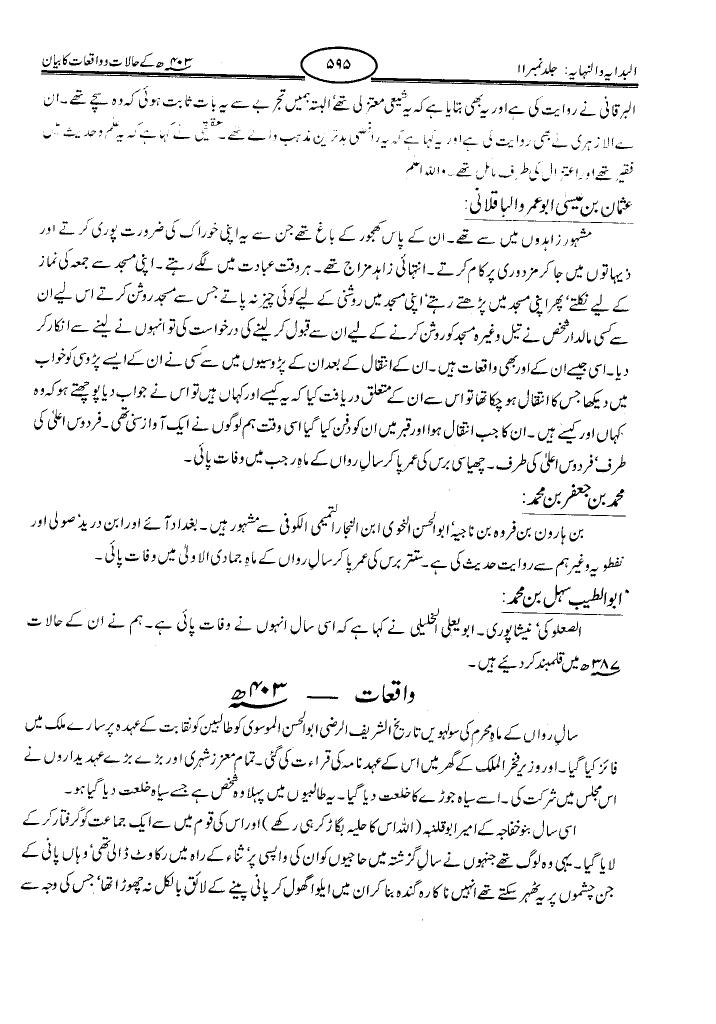 البدایہ والنہایہ: جلد نمبر ۱۱
۵۹۵
۴۰۳ھ کے حالات و واقعات کا بیان
البرقانی نے روایت کی ہے اور یہ بھی بتایا ہے کہ یہ شیعی معتزلی تھے‘ البتہ ہمیں تجربے سے یہ بات ثابت ہوئی کہ وہ سچے تھے۔ ان
سے الازہری نے بھی روایت کی ہے اور یہ کہا ہے کہ یہ رافضی بدترین مذہب والے تھے۔ عقیقی نے کہا ہے کہ یہ علم وحدیث میں
فقیر تھے اور اعتزال کی طرف مائل تھے۔ واللہ اعلم
عثمان بن عیسیٰ ابوعمر والباقلانی:
مشہور زاہدوں میں سے تھے۔ ان کے پاس کھجور کے باغ تھے جن سے یہ اپنی خوراک کی ضرورت پوری کرتے اور
دیہاتوں میں جا کر مزدوری پر کام کرتے۔ انتہائی زاہد مزاج تھے۔ ہر وقت عبادت میں لگے رہتے۔ اپنی مسجد سے جمعہ کی نماز
کے لیے نکلتے‘ پھر اپنی مسجد میں پڑھتے رہتے‘ اپنی مسجد میں روشنی کے لیے کوئی چیز نہ پاتے جس سے مسجد روشن کرتے اس لیے ان
سے کسی مالدار شخص نے تیل وغیرہ مسجد کو روشن کرنے کے لیے ان سے قبول کر لینے کی درخواست کی تو انہوں نے لینے سے انکار کر
دیا۔ اسی جیسے ان کے اور بھی واقعات ہیں۔ ان کے انتقال کے بعد ان کے پڑوسیوں میں سے کسی نے ان کے ایسے پڑوسی کو خواب
میں دیکھا جس کا انتقال ہو چکا تھا تو اس سے ان کے متعلق دریافت کیا کہ یہ کیسے اور کہاں ہیں تو اس نے جواب دیا پوچھتے ہو کہ وہ
کہاں اور کیسے ہیں۔ ان کا جب انتقال ہوا اور قبر میں ان کو دفن کیا گیا اسی وقت ہم لوگوں نے ایک آواز سنی تھی۔ فردوس اعلیٰ کی
طرف‘ فردوس اعلیٰ کی طرف۔ چھیاسی برس کی عمر پا کر سال رواں کے ماہ رجب میں وفات پائی۔
محمد بن جعفر بن محمد:
بن ہارون بن فروہ بن ناجیہ‘ ابوالحسن النحوی ابن النجار التمیمی الکوفی سے مشہور ہیں۔ بغداد آئے اور ابن درید‘ صولی اور
نفطویہ وغیرہم سے روایت حدیث کی ہے۔ ستتر برس کی عمر پا کر سال رواں کے ماہ جمادی الاولیٰ میں وفات پائی۔
ابوالطیب سہل بن محمد:
الصعلوکی‘ نیشاپوری۔ ابویعلی الخلیلی نے کہا ہے کہ اسی سال انہوں نے وفات پائی ہے۔ ہم نے ان کے حالات
۳۸۷ھ میں قلمبند کر دیئے ہیں۔
واقعات — ۴۰۳ھ
سال رواں کے ماہ محرم کی سولہویں تاریخ الشریف الرضی ابوالحسن الموسوی کو طالبین کو نقابت کے عہدہ پر سارے ملک میں
فائز کیا گیا۔ اور وزیر فخر الملک کے گھر میں اس کے عہد نامہ کی قراءت کی گئی۔ تمام معزز شہری اور بڑے بڑے عہدیداروں نے
اس مجلس میں شرکت کی۔ اسے سیاہ جوڑے کا خلعت دیا گیا۔ یہ طالبیوں میں پہلا وہ شخص ہے جسے سیاہ خلعت دیا گیا ہو۔
اسی سال بنو خفاجہ کے امیر ابو قلنبہ (اللہ اس کا حلیہ بگاڑ کر ہی رکھے) اور اس کی قوم میں سے ایک جماعت کو گرفتار کر کے
لایا گیا۔ یہی وہ لوگ تھے جنہوں نے سال گزشتہ میں حاجیوں کو ان کی واپسی پر‘ ثناء کے راہ میں رکاوٹ ڈالی تھی‘ وہاں پانی کے
جن چشموں پر یہ ٹھہر سکتے تھے انہیں ناکارہ گندہ بنا کر ان میں ایلوا گھول کر پانی پینے کے لائق بالکل نہ چھوڑا تھا‘ جس کی وجہ سے